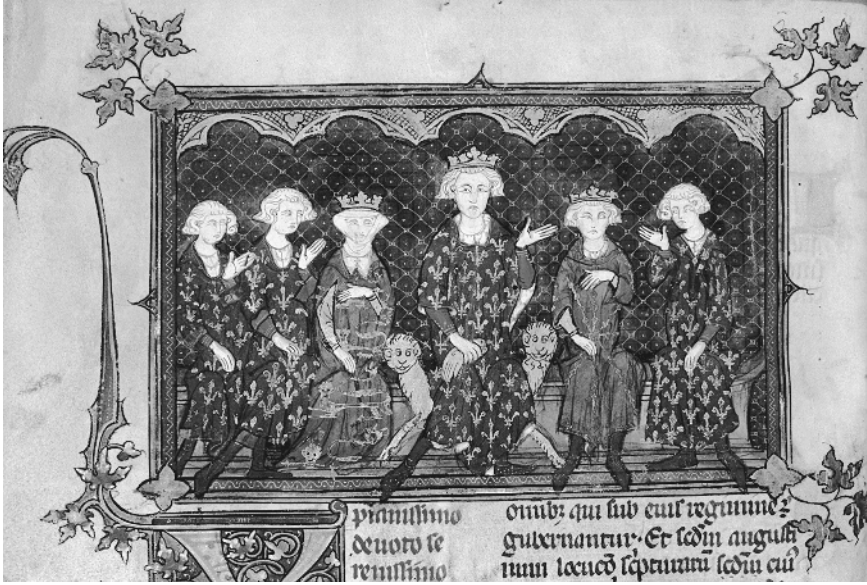 pianissimo
deuoto se
renissimo
omībꝫ qui sub eius regimine ⁊
gubernantur. Et scdm̄ augusti
num locucō scpturarū scdm̄ cuiꝰ